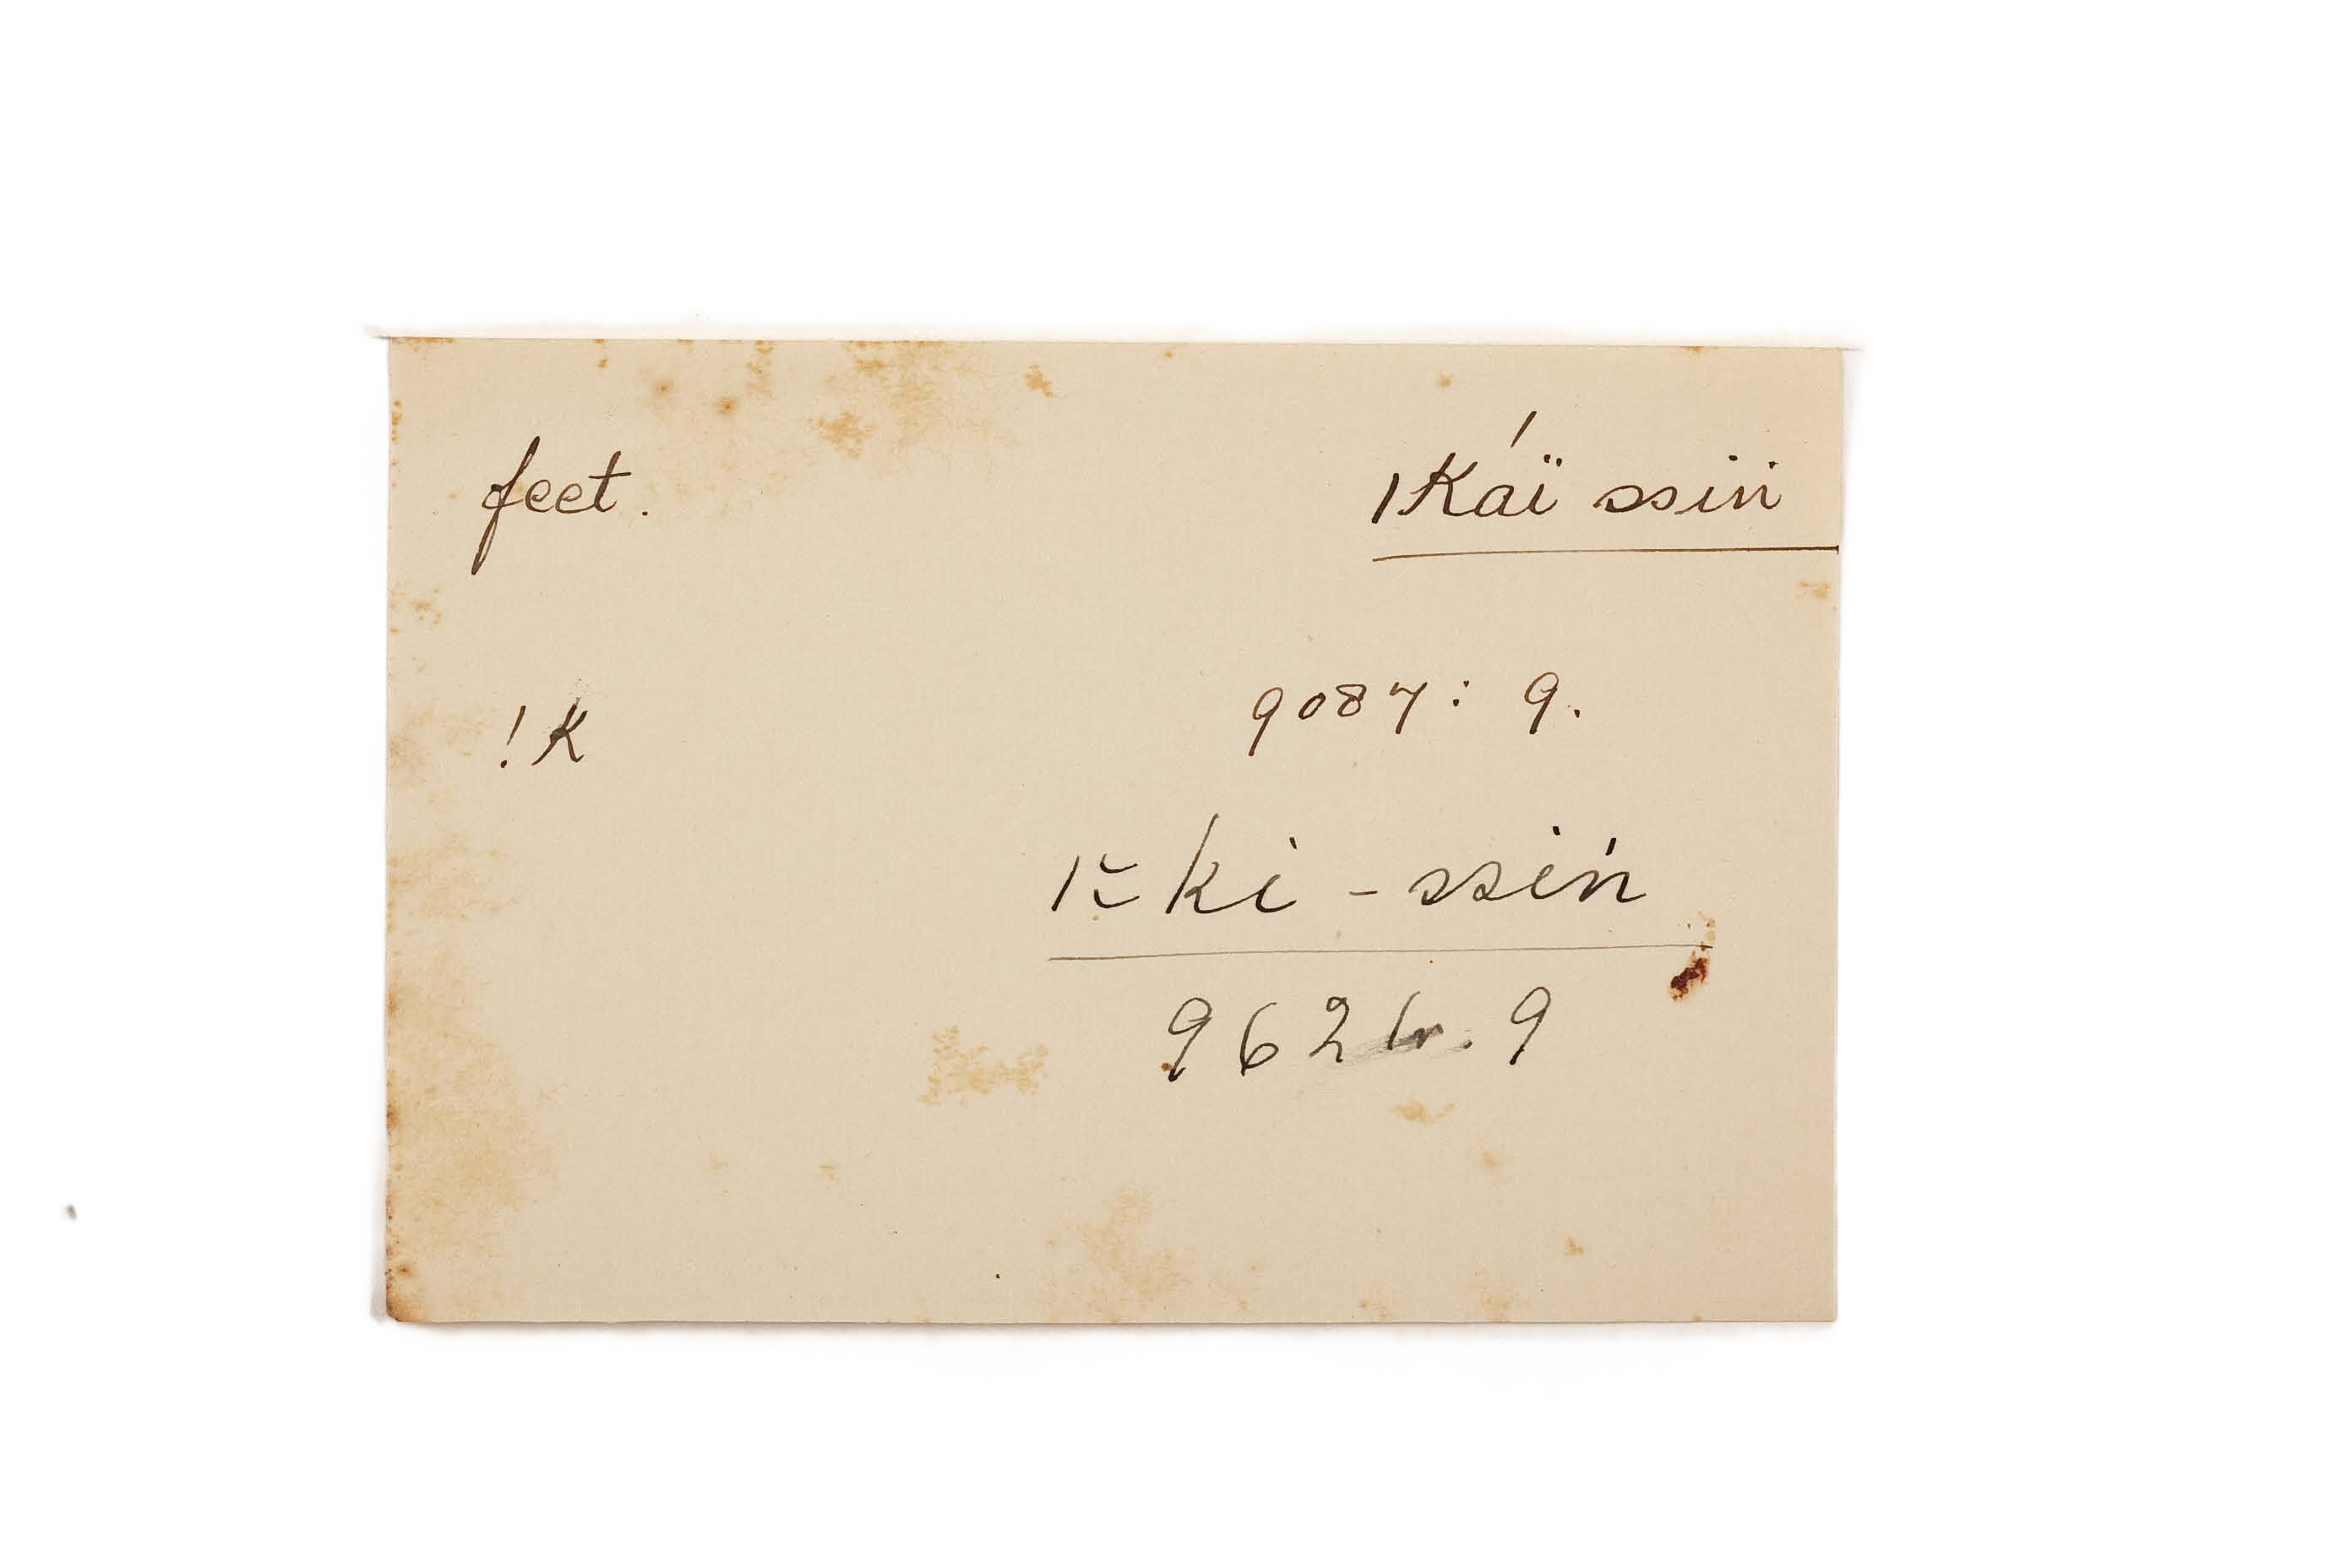 feet. |Káï ssin
!K 9087: 9.
|˘= ki - ssin
962 . 9